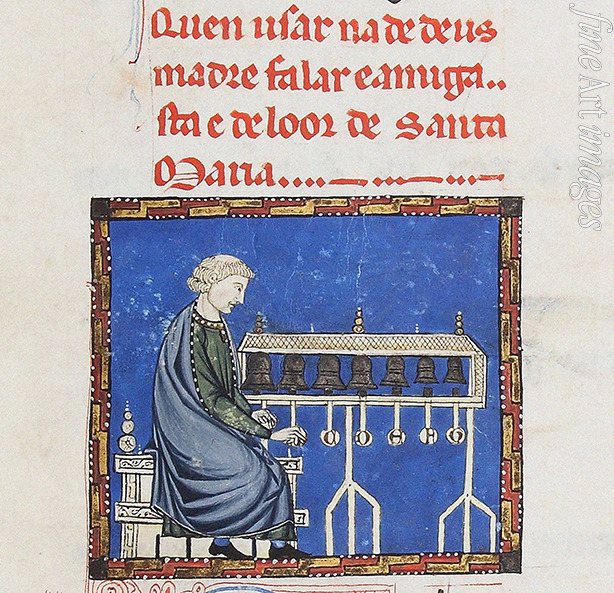 Quen usar na de deus
madre falar e amiga..
sta e de loor de Santa
Maria....
fine Art images